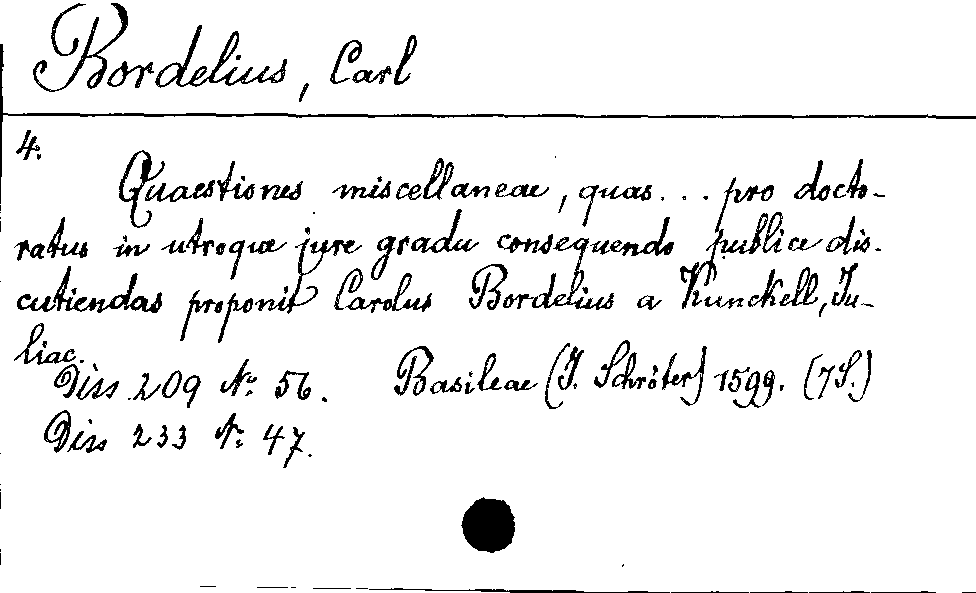 Bordelius, Carl
4.
Quaestiones miscellaneae, quas... pro docto-
ratus in utroque jure gradu consequendo publice dis-
cutiendas proponit Carolus Bordelius a Kunckell, Ju-
liac.
Diss 209 No. 56. Basileae (J. Schröter) 1599. (7 S.)
Diss 233 No. 47.